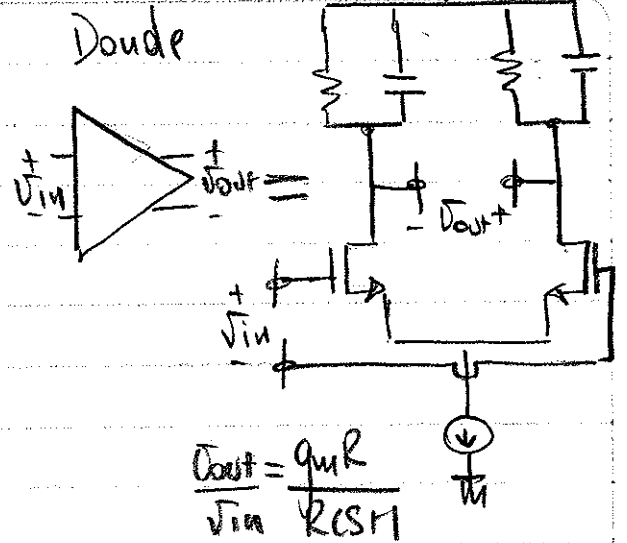 Doude
+ Vin -
+ Vout -
=
- Vout +
+
Vin
-
Vout = gmR
Vin RCS+1